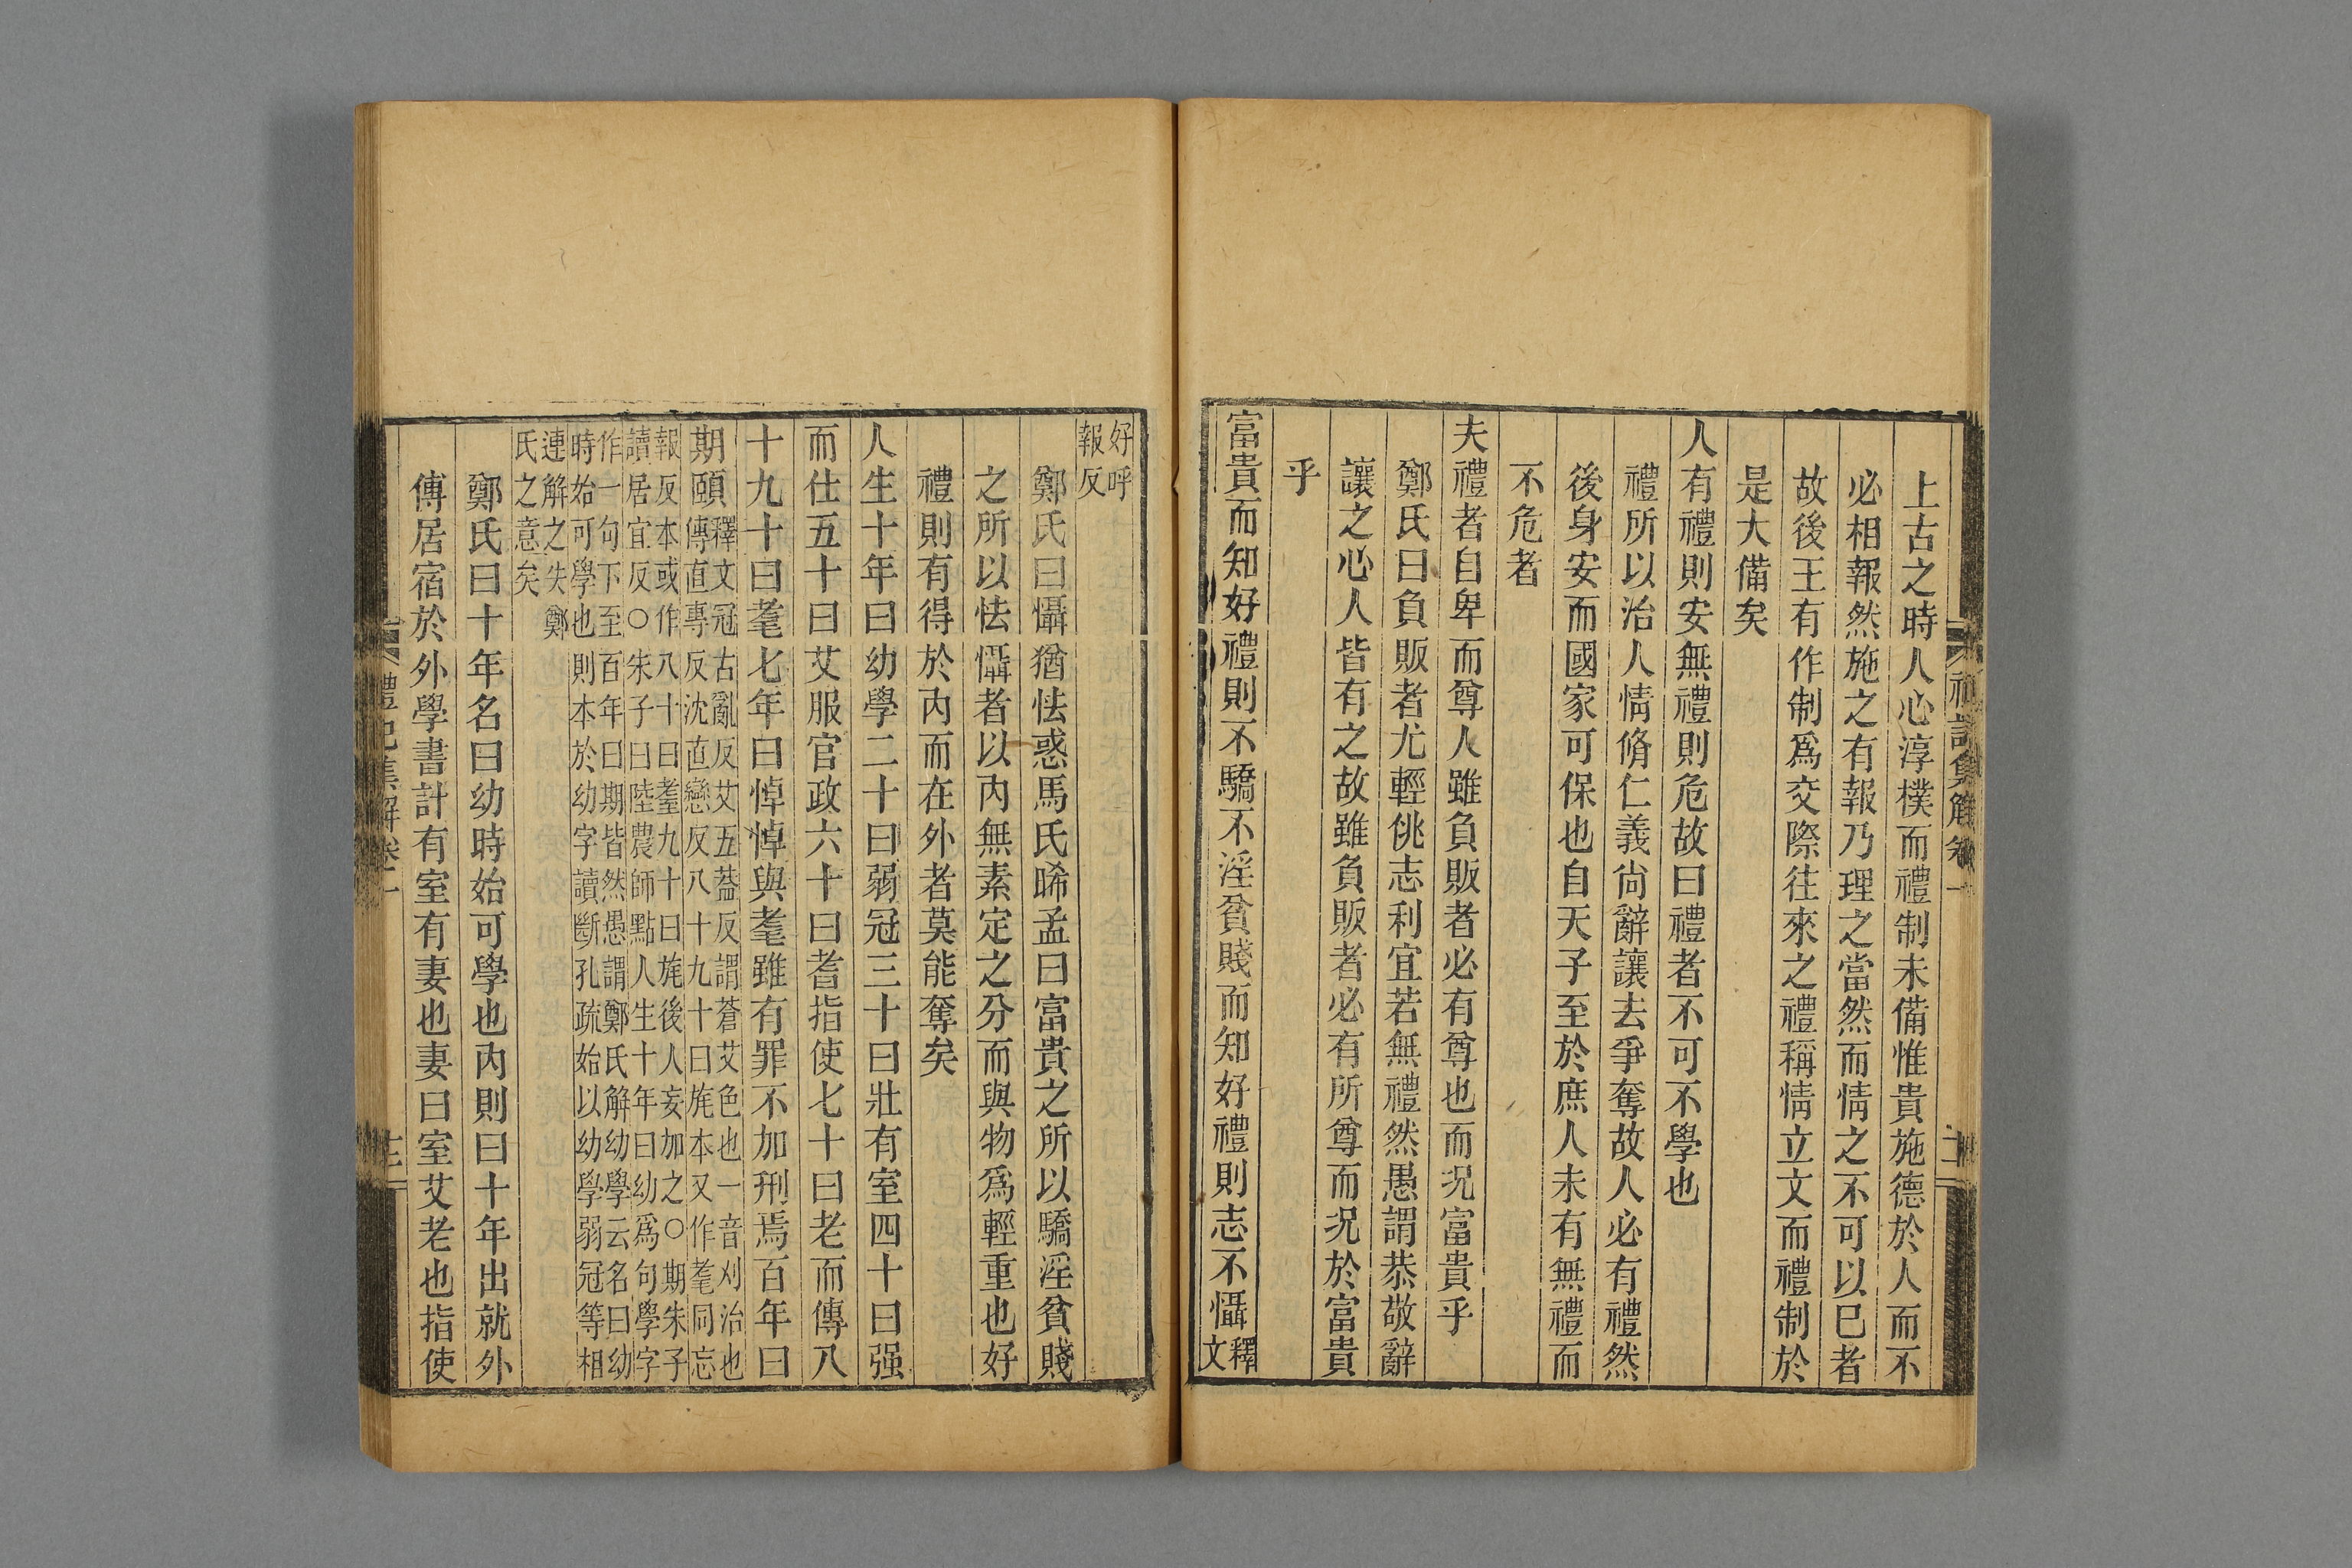 上古之時人心淳樸而禮制未備惟貴施德於人而不
必相報然施之有報乃理之當然而情之不可以已者
故後王有作制爲交際往來之禮稱情立文而禮制於
是大備矣
人有禮則安無禮則危故曰禮者不可不學也
禮所以治人情脩仁義尙辭讓去爭奪故人必有禮然
後身安而國家可保也自天子至於庶人未有無禮而
不危者
夫禮者自卑而尊人雖負販者必有尊也而況富貴乎
鄭氏曰負販者尤輕佻志利宜若無禮然愚謂恭敬辭
讓之心人皆有之故雖負販者必有所尊而況於富貴
乎
富貴而知好禮則不驕不淫貧賤而知好禮則志不懾釋文
好呼報反
鄭氏曰懾猶怯惑馬氏晞孟曰富貴之所以驕淫貧賤
之所以怯懾者以內無素定之分而與物爲輕重也好
禮則有得於內而在外者莫能奪矣
人生十年曰幼學二十曰弱冠三十曰壯有室四十曰强
而仕五十曰艾服官政六十曰耆指使七十曰老而傳八
十九十曰耄七年曰悼悼與耄雖有罪不加刑焉百年曰
期頤釋文冠古亂反艾五蓋反謂蒼艾色也一音刈治也
傳直專反沈直戀反八十九十曰旄本又作耄同忘
報反本或作八十曰耋九十曰旄後人妄加之○期朱子
讀居宜反○朱子曰陸農師點人生十年曰幼爲句學字
作一句下至百年曰期皆然愚謂鄭氏解幼學云名曰幼
時始可學也則本於幼字讀斷孔疏始以幼學弱冠等相
連解之失鄭
氏之意矣
鄭氏曰十年名曰幼時始可學也內則曰十年出就外
傳居宿於外學書計有室有妻也妻曰室艾老也指使
禮記集解卷一
禮記集解卷一